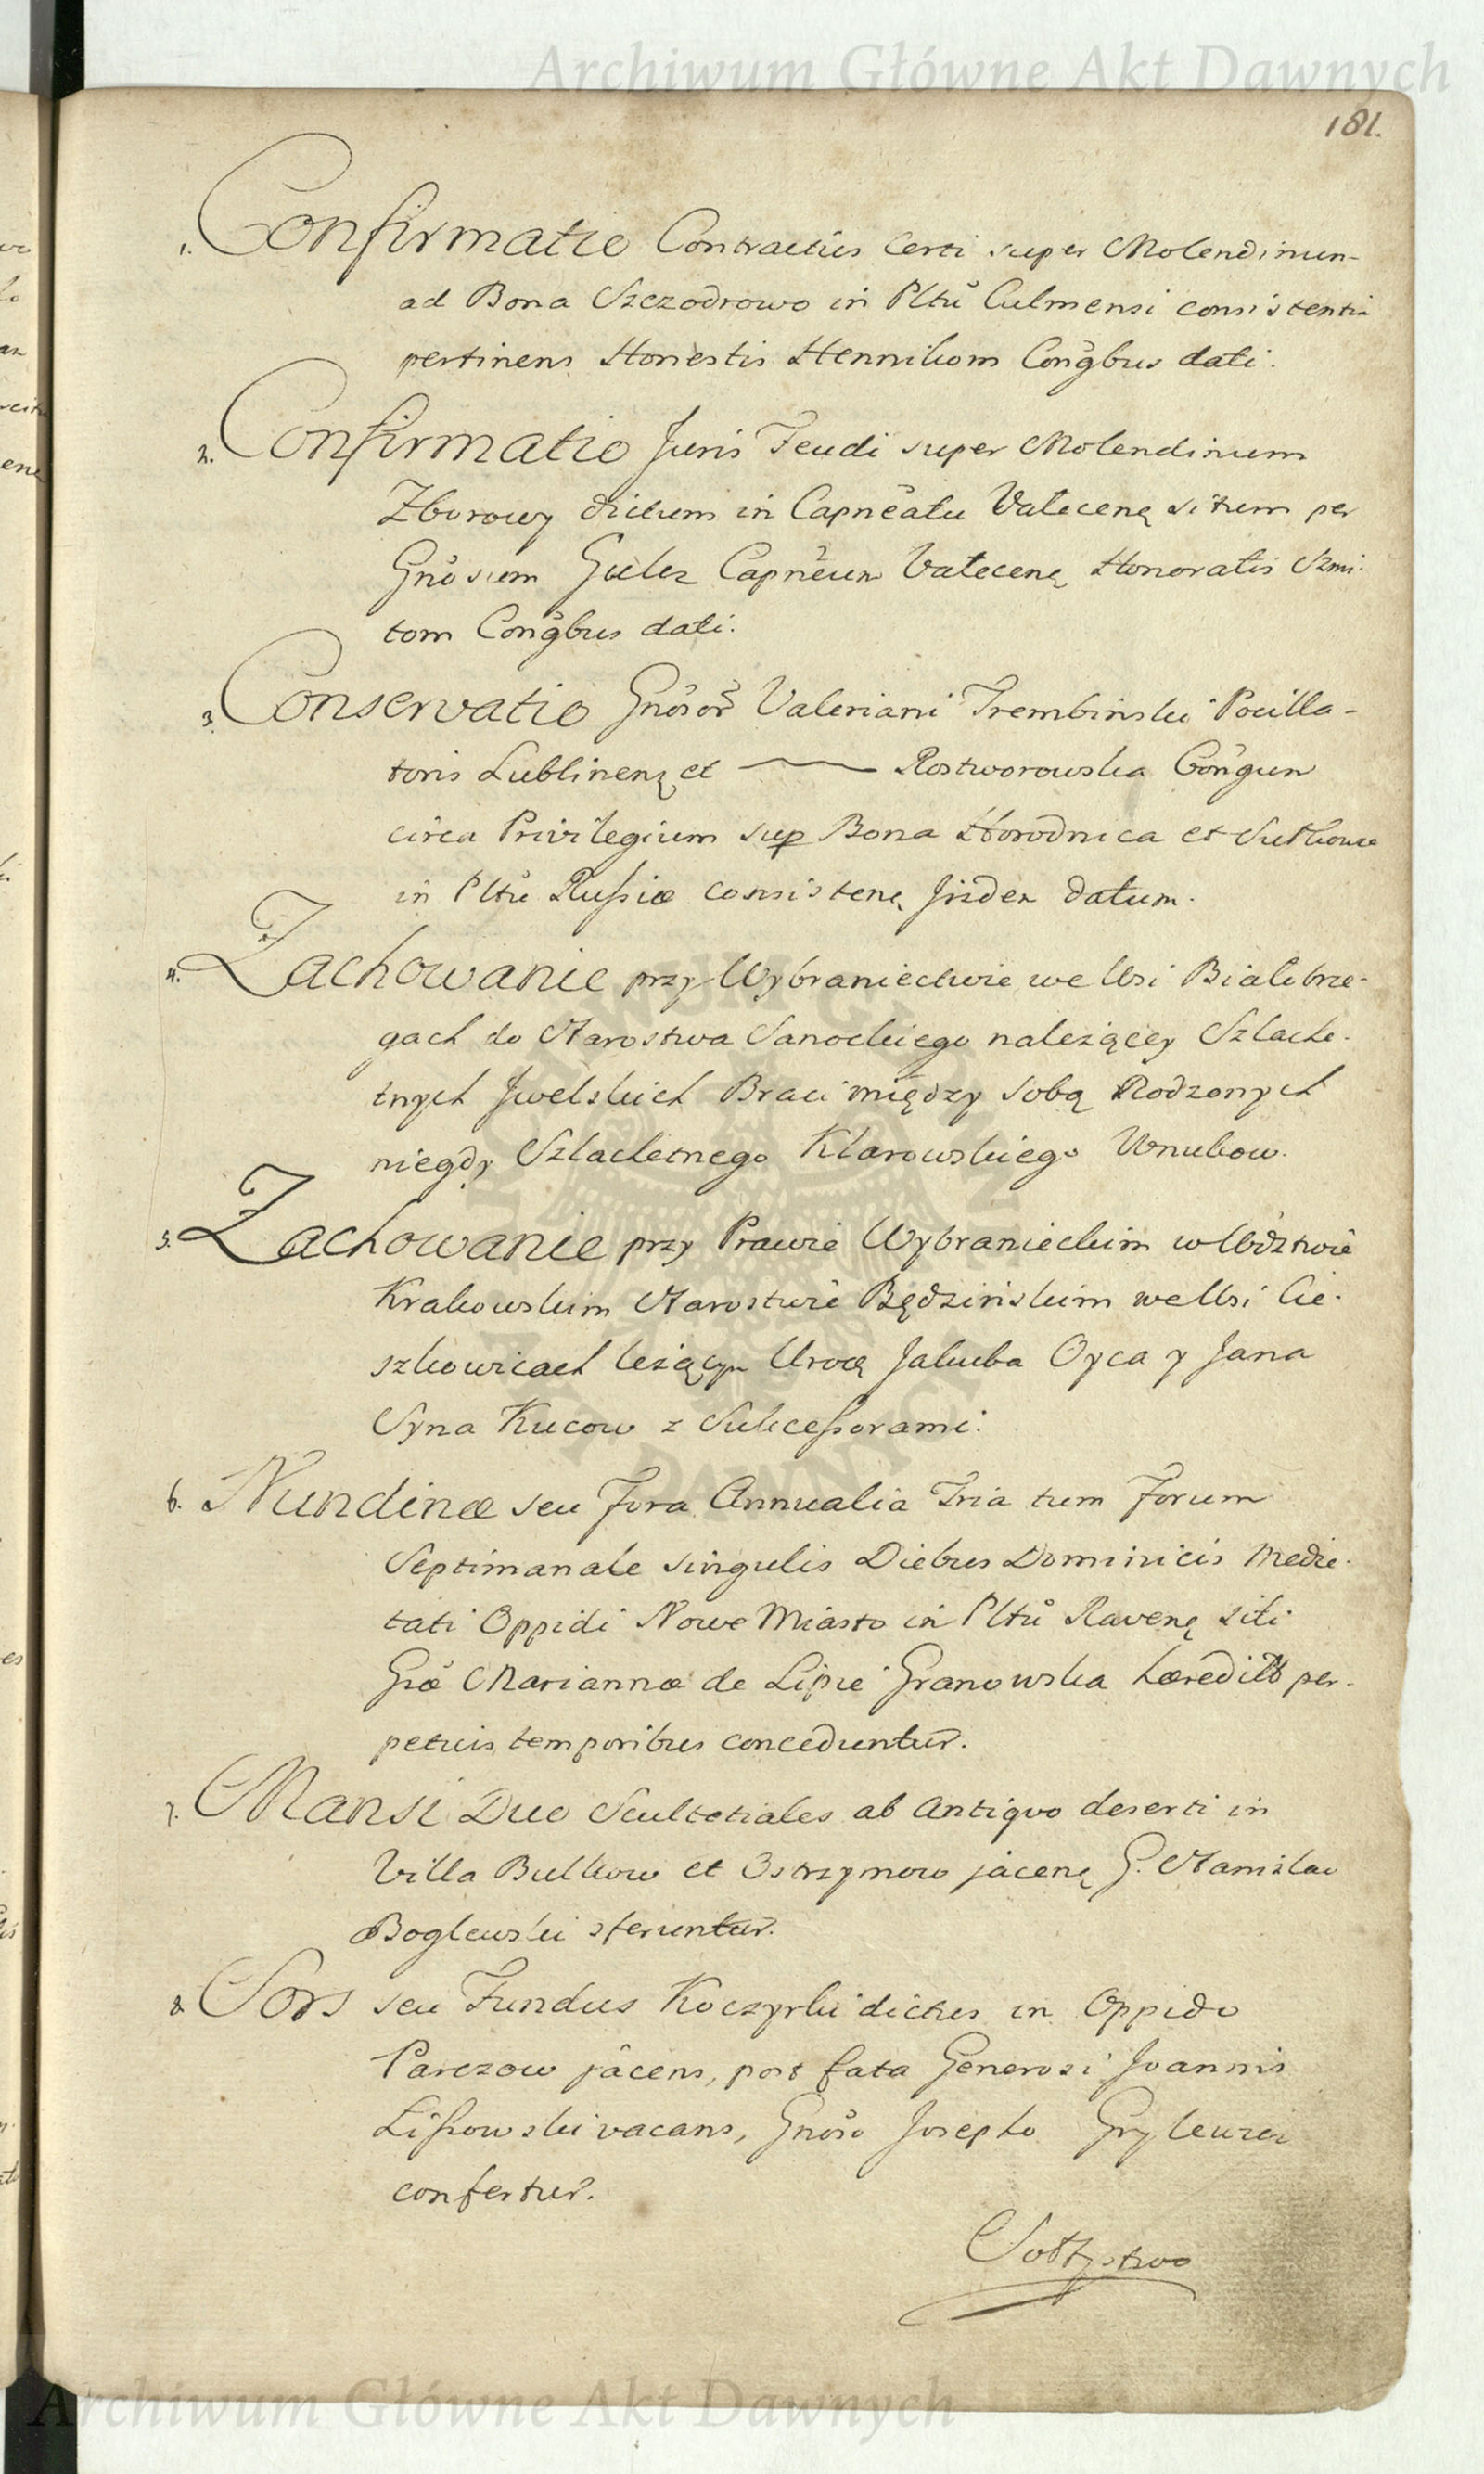 Archiwum Główne Akt Dawnych
181.
1. Confirmatio Contractûs Certi super Molendinum
ad Bona Szczodrowo in Pltû Culmensi consistentia
pertinens Honestis Hennikom Congbus dati.
2. Confirmatio Juris Feudi super Molendinum
Zborowy dictum in Capneatu Valecen. situm per
Gnosum Gultz Capneum Valecen. Honoratis Szmi-
tom Congbus dati.
3. Conservatio Gnosor Valeriani Trembinski Pocilla-
toris Lublinen. et — Rostworowska Congum
circa Privilegium sup Bona Horodnica et Sutkowce
in Pltû Russiæ consisten. Jisdem datum.
4. Zachowanie przy Wybraniectwie we Wsi Białobrze-
gach do Starostwa Sanockiego należącey Szlache-
tnych Jwelskich Braci między sobą Rodzonych
niegdy Szlachetnego Klarowskiego Wnukow.
5. Zachowanie przy Prawie Wybranieckim w Wdztwie
Krakowskim Starostwie Będzińskim we Wsi Cie-
szkowicach leżącym Urocz Jakuba Oyca y Jana
Syna Kucow z Sukcessorami.
6. Nundinæ seu Fora Annualia Tria tum Forum
Septimanale singulis Diebus Dominicis Medie-
tati Oppidi Nowe Miasto in Pltû Raven. siti
Gsæ Mariannæ de Lipie Granowska hæredit per-
petuis temporibus conceduntur.
7. Mansi Duo Scultetiales ab Antiquo deserti in
Villa Bulkow et Ostrzymow jacen. G. Stanislao
Boglewski sferuntur.
8. Sors seu Fundus Koczyrki dictus in Oppido
Parczow jacens, post fata Generosi Joannis
Lissowski vacans, Gnoso Josepho Grylewicz
confertur.
Sołtystwo
Archiwum Główne Akt Dawnych